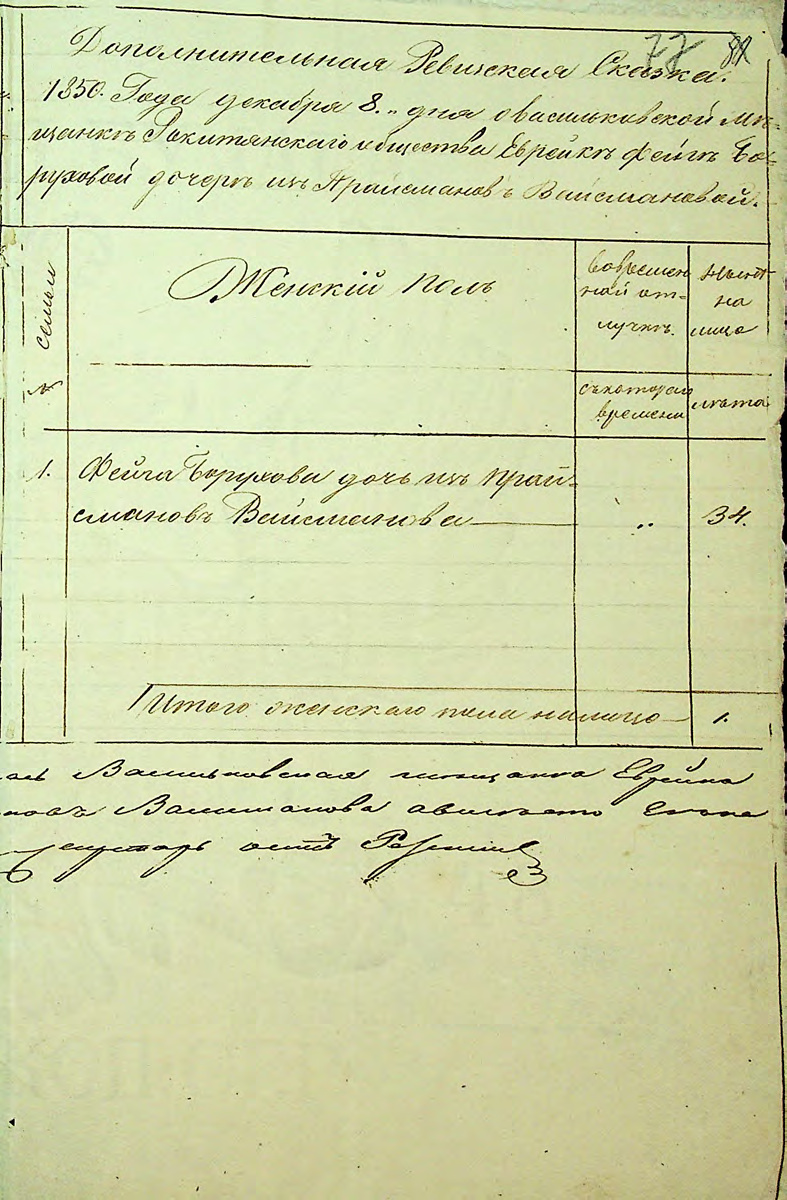 77 82
Дополнительная Ревизская Сказка.
1850. Года декабря 8.„ дня о васильковской мѣ-
щанкѣ Рокитянскаго общества Еврейкѣ Фейгѣ Бо-
руховой дочерѣ изъ Прайсмановъ Вайсмановой.
семьи
№
Женскій полъ
во времен
ной от-
лучкѣ.
нынѣ
на
лицо
съ котораго
времени
лѣта
1. Фейга Борухова дочь изъ Прай-
смановъ Вайсманова „ 34.
Итого женскаго пола налицо 1.
Васильковская мещанка Еврейка
новъ Вайсманова а вместо